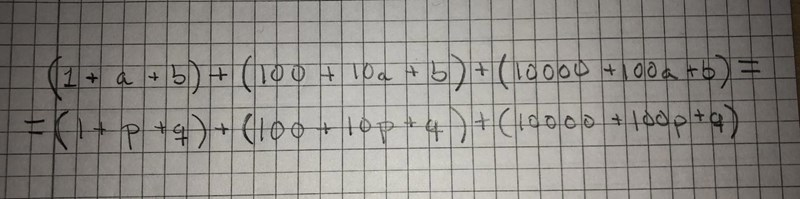 (1 + a + b) + (100 + 10a + b) + (10000 + 100a + b) =
= (1 + p + q) + (100 + 10p + q) + (10000 + 100p + q)